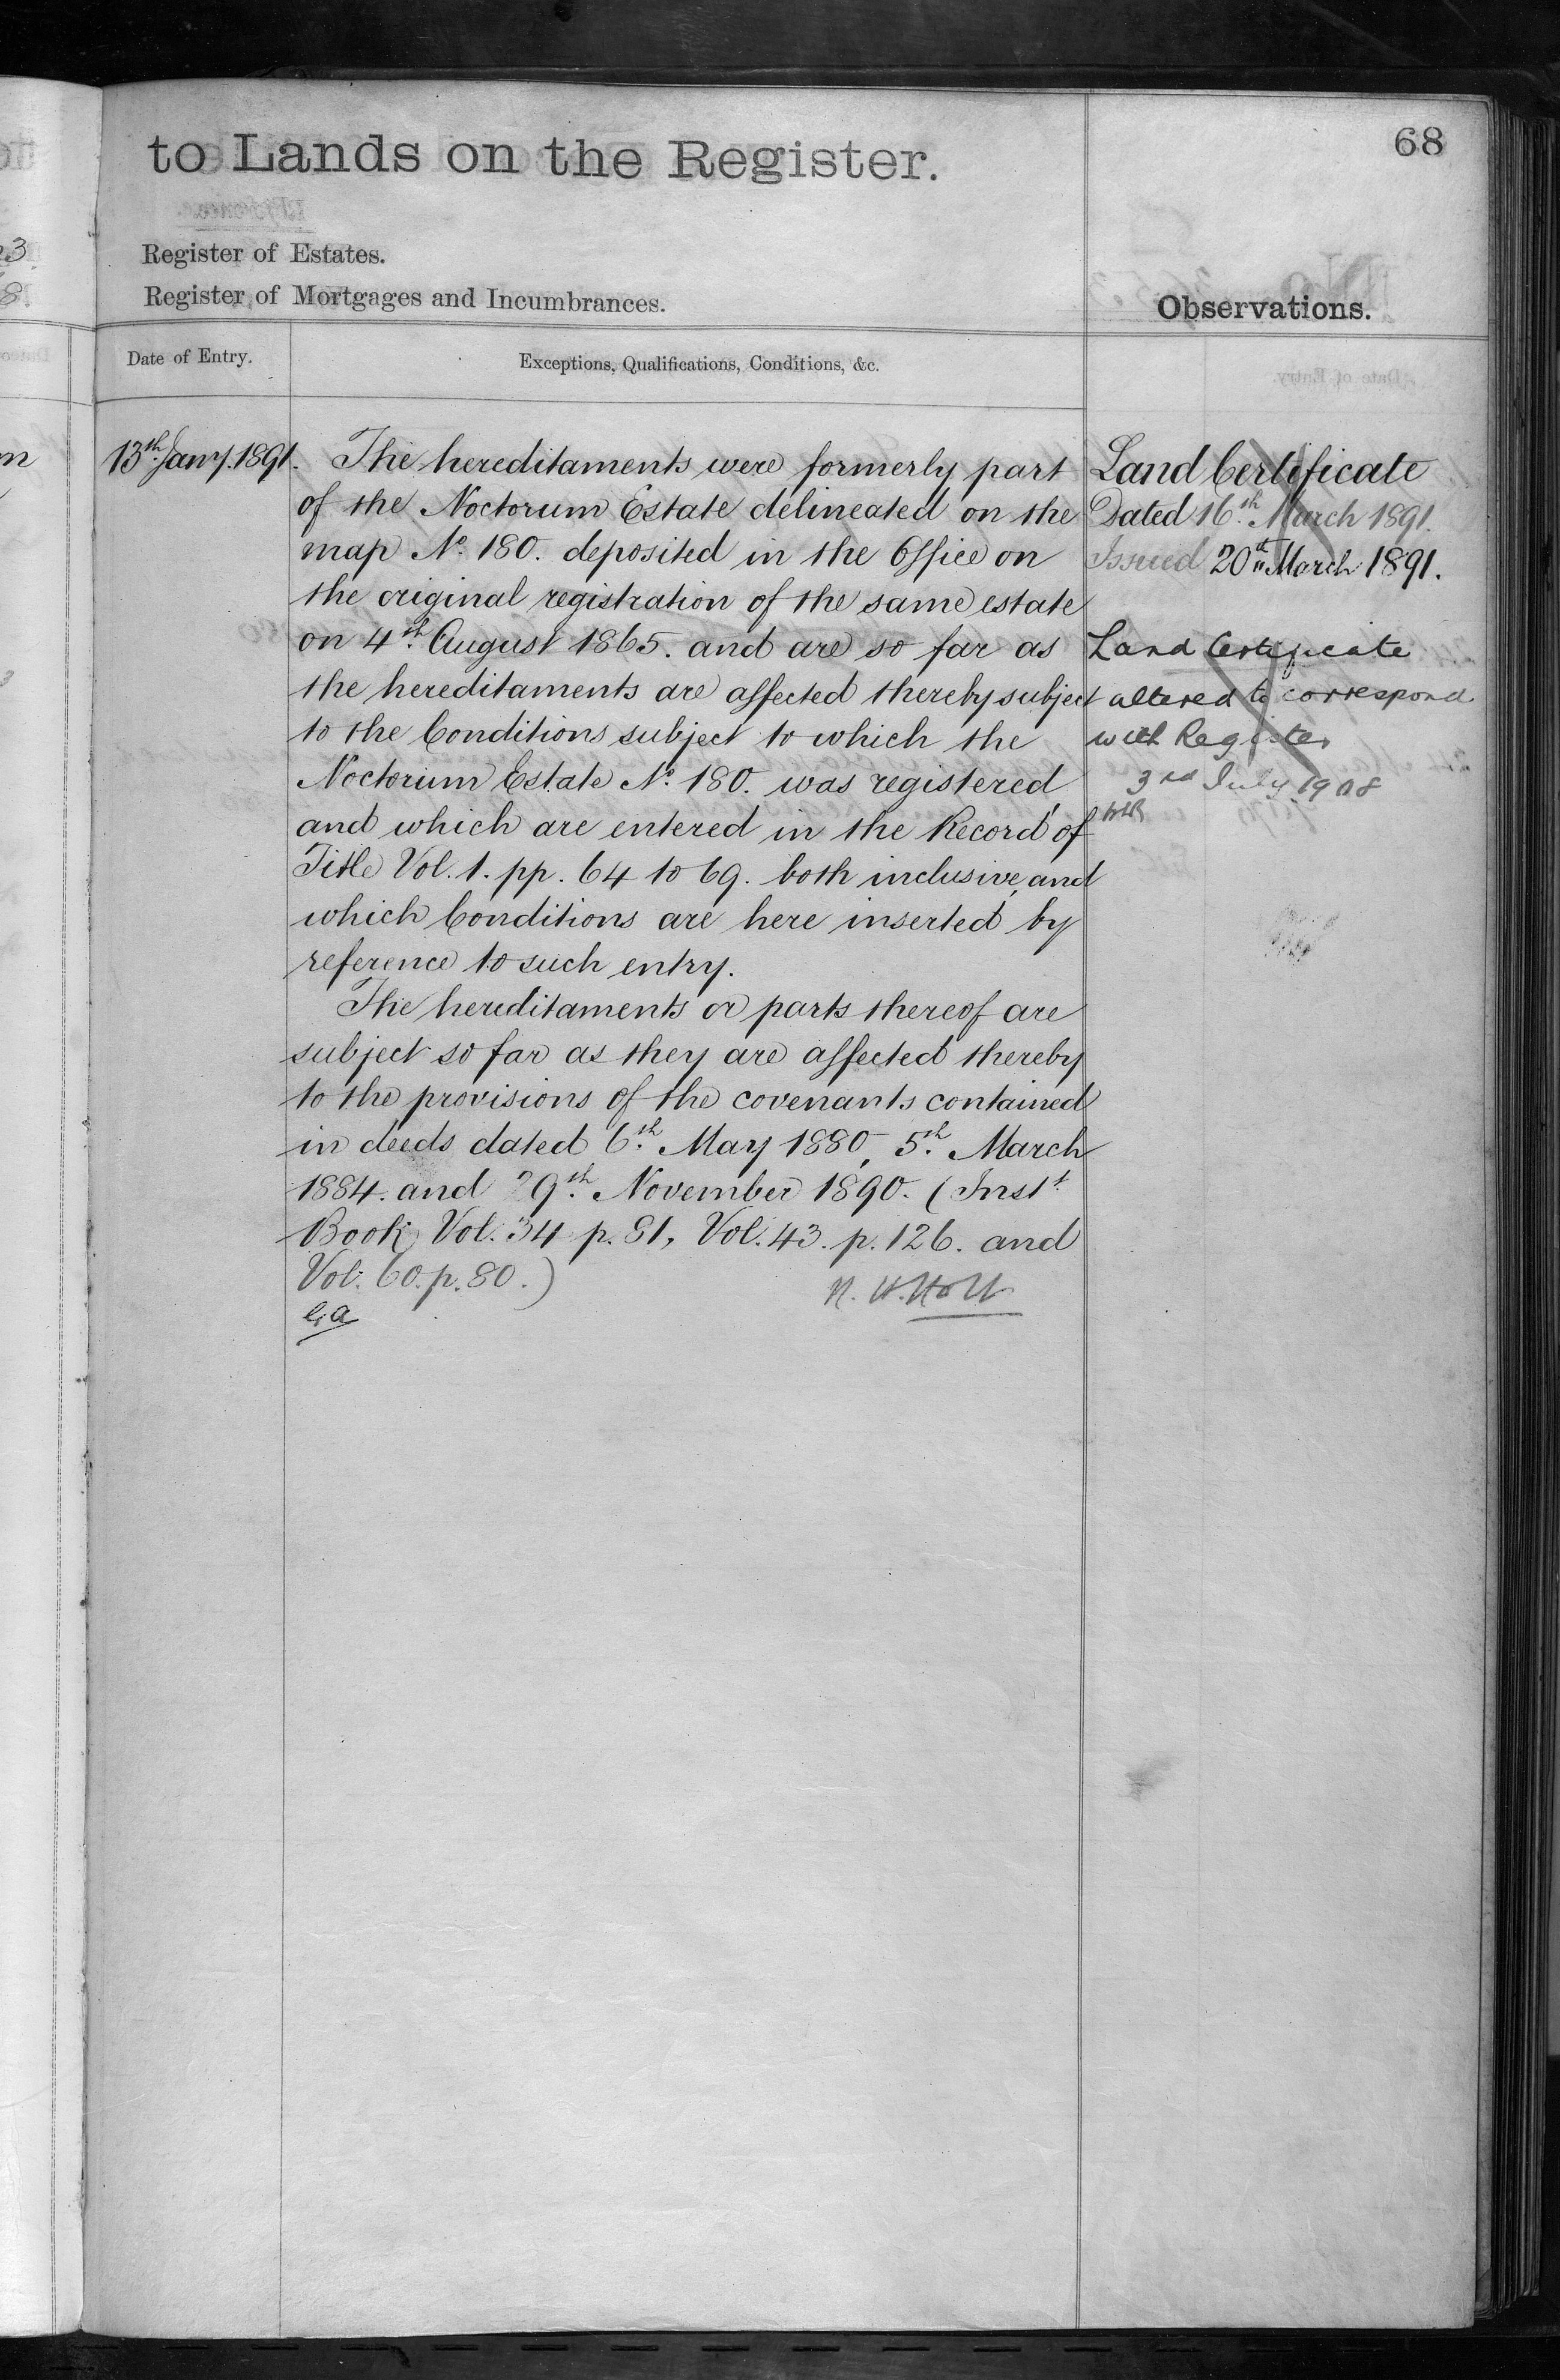 68
to Lands on the Register.
Register of Estates.
Register of Mortgages and Incumbrances.
Observations.
Date of Entry.
Exceptions, Qualifications, Conditions, &c.
13th Jany. 1891.
The hereditaments were formerly part
of the Noctorum Estate delineated on the
map No. 180. deposited in the Office on
the original registration of the same estate
on 4th August 1865. and are so far as
the hereditaments are affected thereby subject
to the Conditions subject to which the
Noctorum Estate No. 180. was registered
and which are entered in the Record of
Title Vol. 1. pp. 64 to 69. both inclusive, and
which Conditions are here inserted by
reference to such entry.
The hereditaments or parts thereof are
subject so far as they are affected thereby
to the provisions of the covenants contained
in deeds dated 6th May 1880, 5th March
1884. and 29th November 1890. (Inst.
Book Vol. 34 p. 81, Vol. 43. p. 126. and
Vol. 60. p. 80.)
Land Certificate
Dated 16th March 1891.
Issued 20th March 1891.
Land Certificate
altered to correspond
with Register
3rd July 1908